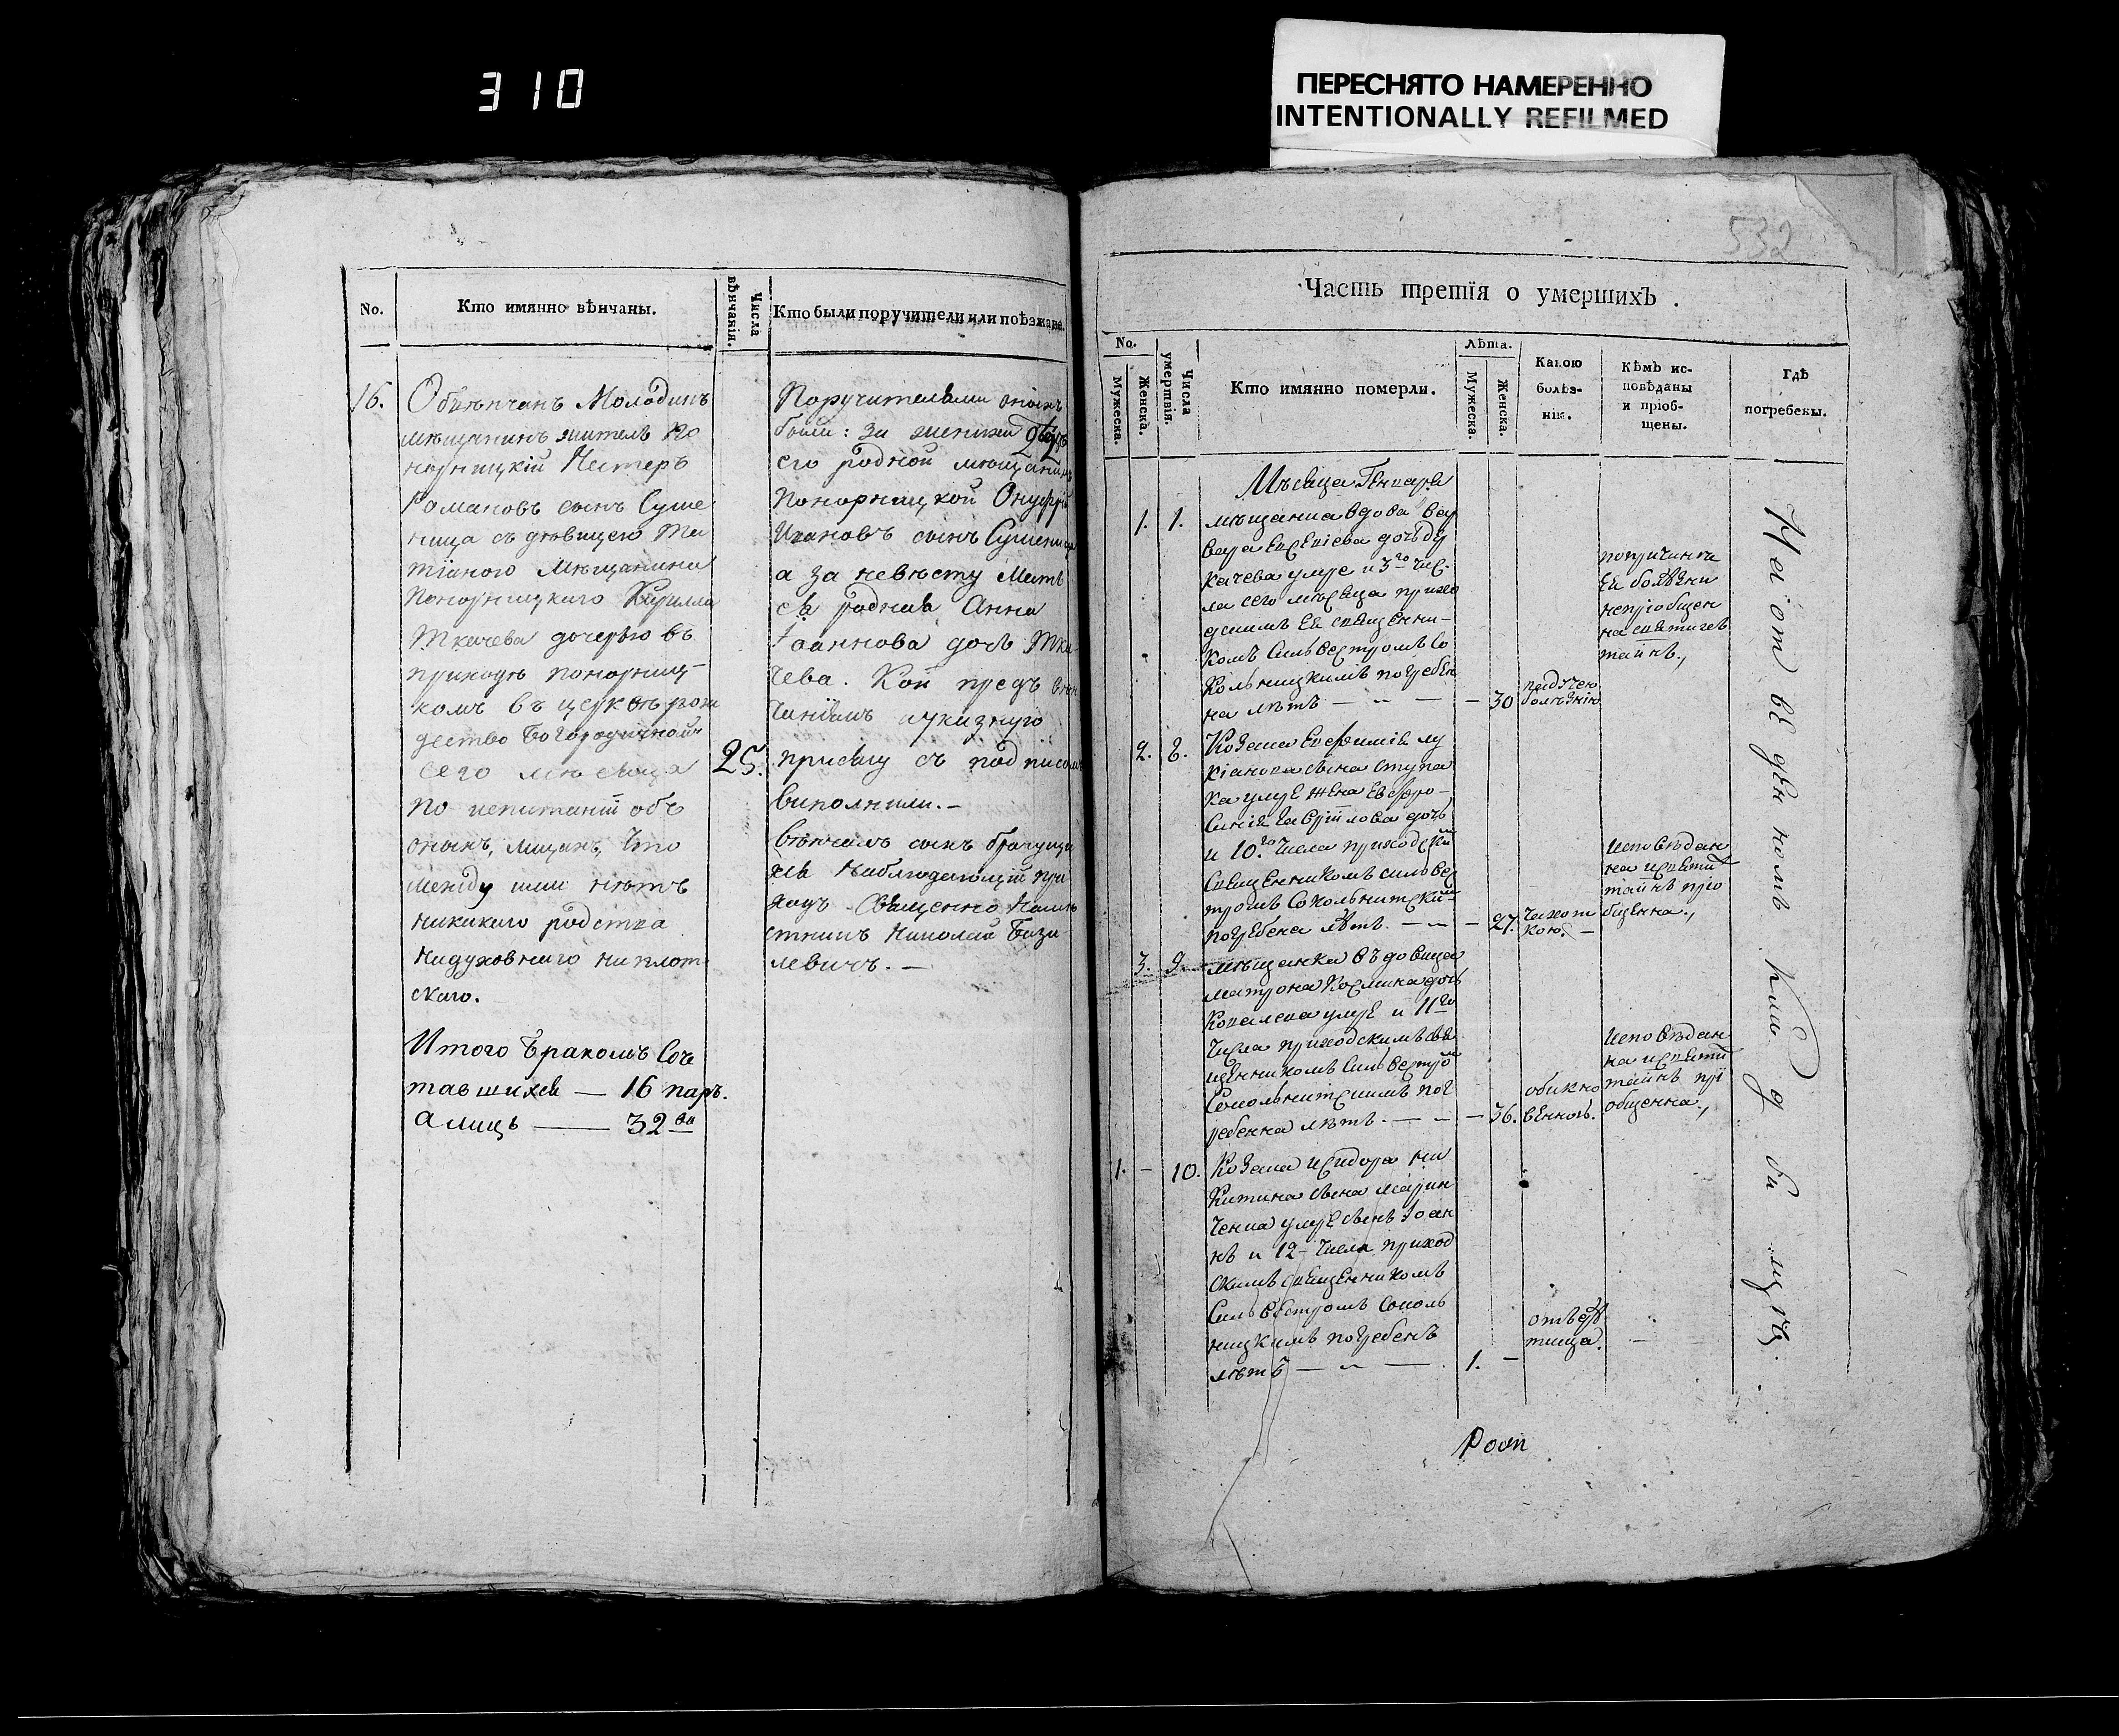 310
ПЕРЕСНЯТО НАМЕРЕННО
INTENTIONALLY REFILMED
No.
Кто имянно вѣнчаны.
Числа
вѣнчанія.
Кто были поручители или поѣзжане.
16.
Обвѣнчанъ Молодикъ
мѣщанинъ жителъ По
норницкій Нестеръ
Романовъ сынъ Суше
ница съ девицею Та
тіаною Мѣщанина
Понорницкаго Кирилла
Ткачева дочерью въ
приходѣ понорниц
комъ въ церквѣ рож
дество Богородичной
сего мѣсяца
25.
по испитаніи объ
оныхъ, лицахъ, Что
между ими нѣтъ
никакого родства
нидуховнаго ниплот
скаго.
Итого Бракомъ Соче
тавшихся — 16 паръ.
А лицъ — 32
Поручителями оныхъ
были: за жениха
его родной мѣщанинъ
Понорницкой Онуфрій
Ивановъ сынъ Сушеница
а за невѣсту Мать
ея родная Анна
Іоаннова дочь Тка
чева. Кои предъ вѣн
чаніемъ указную
присягу съ подписомъ
виполнили. —
Вѣнчалъ сихъ брачущи
хся Наблюдающій при
ходъ Священно Намѣ
стникъ Николай Бази
левичъ. —
532
Часть третія о умершихъ.
No.
Мужеска.
Женска.
Числа
умертвія.
Кто имянно померли.
Лѣта.
Мужеска.
Женска.
Какою
болѣз-
нію.
Кѣмъ ис-
повѣданы
и пріоб-
щены.
Гдѣ
погребены.
Мѣсяца Генваря
1. 1. мѣщанка вдова Вар
вара дочъ
качева умре и 3го чис
ла сего мѣсяца прихо
дскимъ Ея священни-
комъ Сильвестромъ Со
кольницкимъ погребен
на лѣтъ — 30
падучею
болѣзнію
попричинѣ
Ея болѣзни
непріобщен
на святихъ
таинъ.,
2. 8. Козака Евфимія Лу
кіанова сина Ступа
ка умре жена Евфро-
синія Гавріилова дочъ
и 10.го Числа приходски
Священникомъ Сильвес
тромъ Сокольнитски
погребена лѣтъ. — 27.
Чахот
кою. —
исповѣдан
на и святи
таинъ прио
бщенна.,
3. 9. мѣщанка въдовица
матрона Космина дочъ
Ковалева умре и 11го
Числа приходскимъ свя
щенникомъ Сильвестро
Сокольнитскимъ пог
ребенна лѣтъ. — 36.
обикно
венною.
исповѣдан
на и святи
таинъ прі
общенна.,
1. — 10. Козака Исидора Ни
китина сина Марин
ченка умре синъ Іоан
нъ и 12 Числа приход
скимъ священникомъ
Сильвестромъ Соколь
ницкимъ погребенъ
лѣтъ — 1. —
На отведенномъ кладбищѣ.